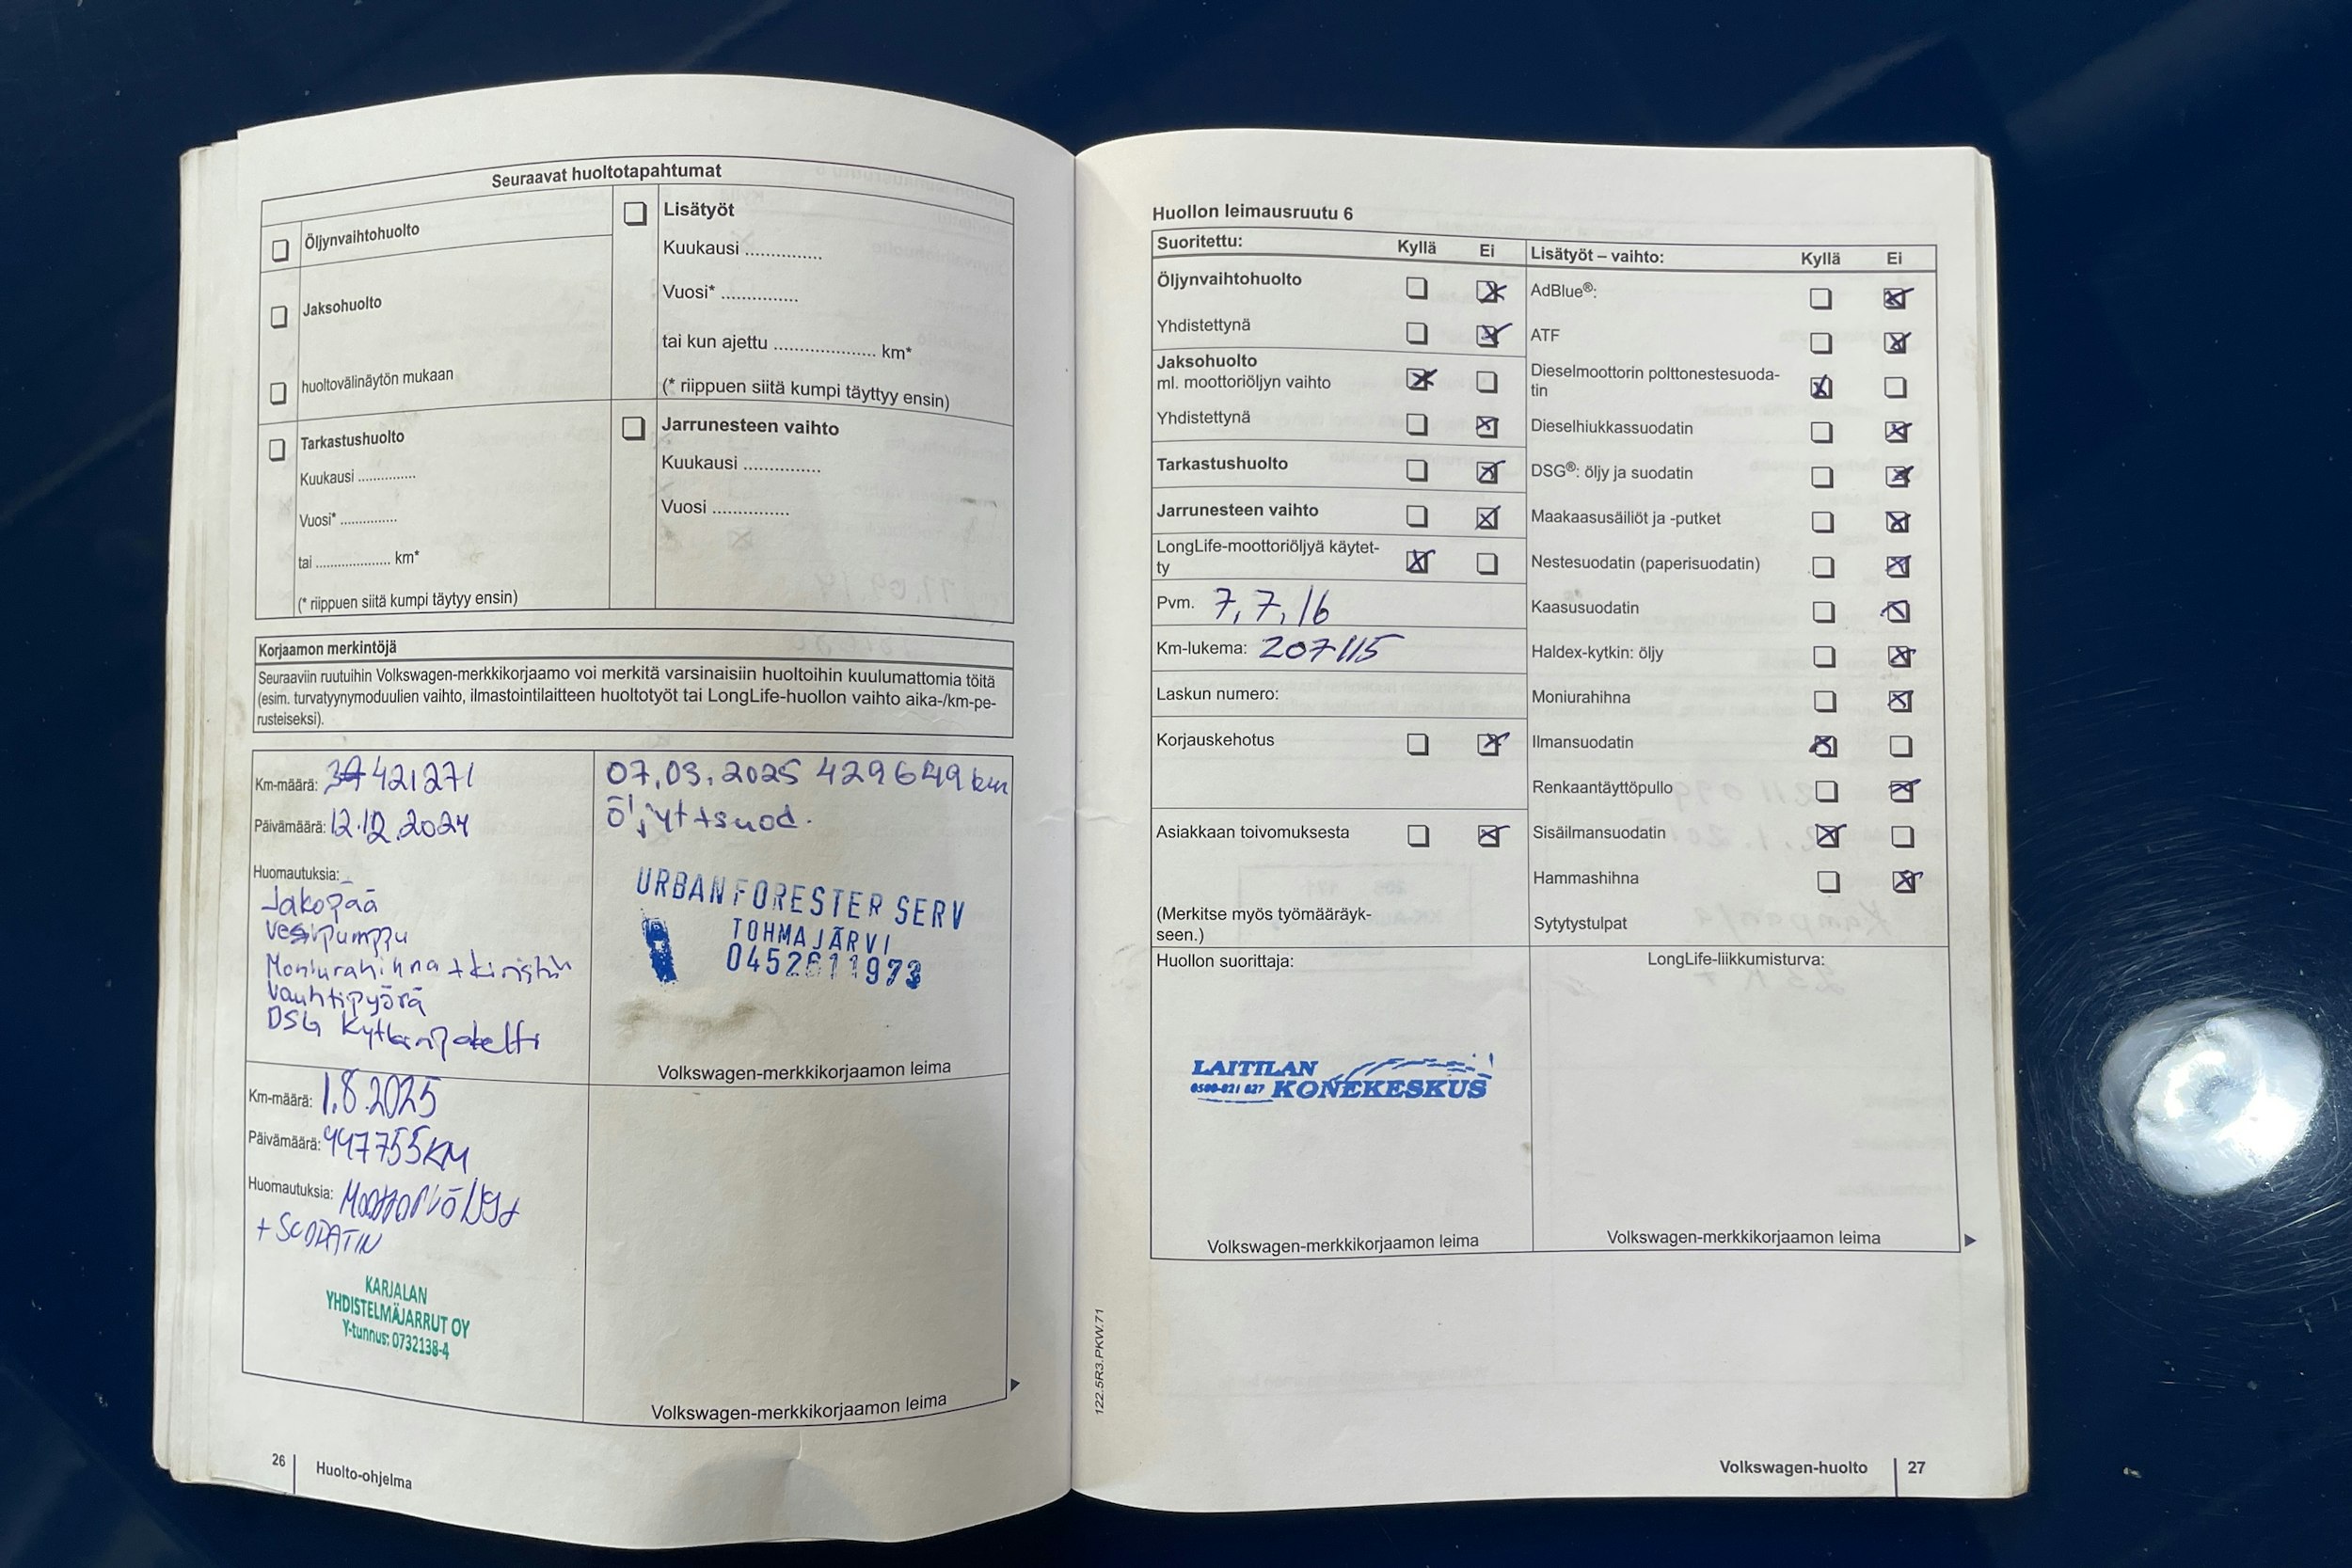 Seuraavat huoltotapahtumat
Öljynvaihtohuolto
Jaksohuolto
huoltovälinäytön mukaan
Tarkastushuolto
Kuukausi ..............
Vuosi* ..............
tai .................... km*
(* riippuen siitä kumpi täytyy ensin)
Lisätyöt
Kuukausi ...............
Vuosi* ...............
tai kun ajettu .................... km*
(* riippuen siitä kumpi täyttyy ensin)
Jarrunesteen vaihto
Kuukausi ...............
Vuosi ...............
Korjaamon merkintöjä
Seuraaviin ruutuihin Volkswagen-merkkikorjaamo voi merkitä varsinaisiin huoltoihin kuulumattomia töitä
(esim. turvatyynymoduulien vaihto, ilmastointilaitteen huoltotyöt tai LongLife-huollon vaihto aika-/km-pe-
rusteiseksi).
Km-määrä: 421271
Päivämäärä: 12.12.2024
Huomautuksia:
Jakopää
Vesipumppu
Moniurahihna + kiristin
Vauhtipyörä
DSG kytkinpaketti
07.03.2025 429649 km
öljyt+suod.
URBAN FORESTER SERV
TOHMAJÄRVI
0452611973
Volkswagen-merkkikorjaamon leima
Km-määrä: 1.8.2025
Päivämäärä: 447755KM
Huomautuksia: Moottoriöljyt
+ SUODATIN
KARJALAN
YHDISTELMÄJARRUT OY
Y-tunnus: 0732138-4
Volkswagen-merkkikorjaamon leima
26 Huolto-ohjelma
Huollon leimausruutu 6
Suoritettu: Kyllä Ei
Öljynvaihtohuolto
Yhdistettynä
Jaksohuolto
ml. moottoriöljyn vaihto
Yhdistettynä
Tarkastushuolto
Jarrunesteen vaihto
LongLife-moottoriöljyä käytet-
ty
Pvm. 7.7.16
Km-lukema: 207115
Laskun numero:
Korjauskehotus
Asiakkaan toivomuksesta
(Merkitse myös työmääräyk-
seen.)
Lisätyöt – vaihto: Kyllä Ei
AdBlue®:
ATF
Dieselmoottorin polttonestesuoda-
tin
Dieselhiukkassuodatin
DSG®: öljy ja suodatin
Maakaasusäiliöt ja -putket
Nestesuodatin (paperisuodatin)
Kaasusuodatin
Haldex-kytkin: öljy
Moniurahihna
Ilmansuodatin
Renkaantäyttöpullo
Sisäilmansuodatin
Hammashihna
Sytytystulpat
Huollon suorittaja:
LAITILAN
0500-821 827 KONEKESKUS
Volkswagen-merkkikorjaamon leima
LongLife-liikkumisturva:
Volkswagen-merkkikorjaamon leima
122.5R3.PKW.71
Volkswagen-huolto 27